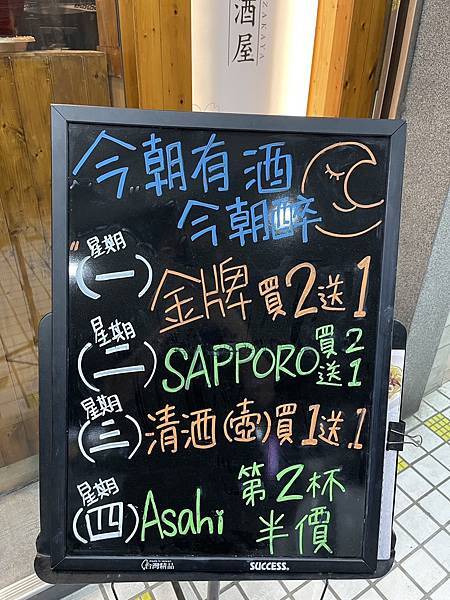 酒屋
IZAKAYA
今朝有酒
今朝醉
星期
(一)金牌買2送1
星期
(二)SAPPORO買2
送1
星期
(三)清酒(壺)買1送1
星期
(四)Asahi 第2杯
半價
台灣精品
SUCCESS.